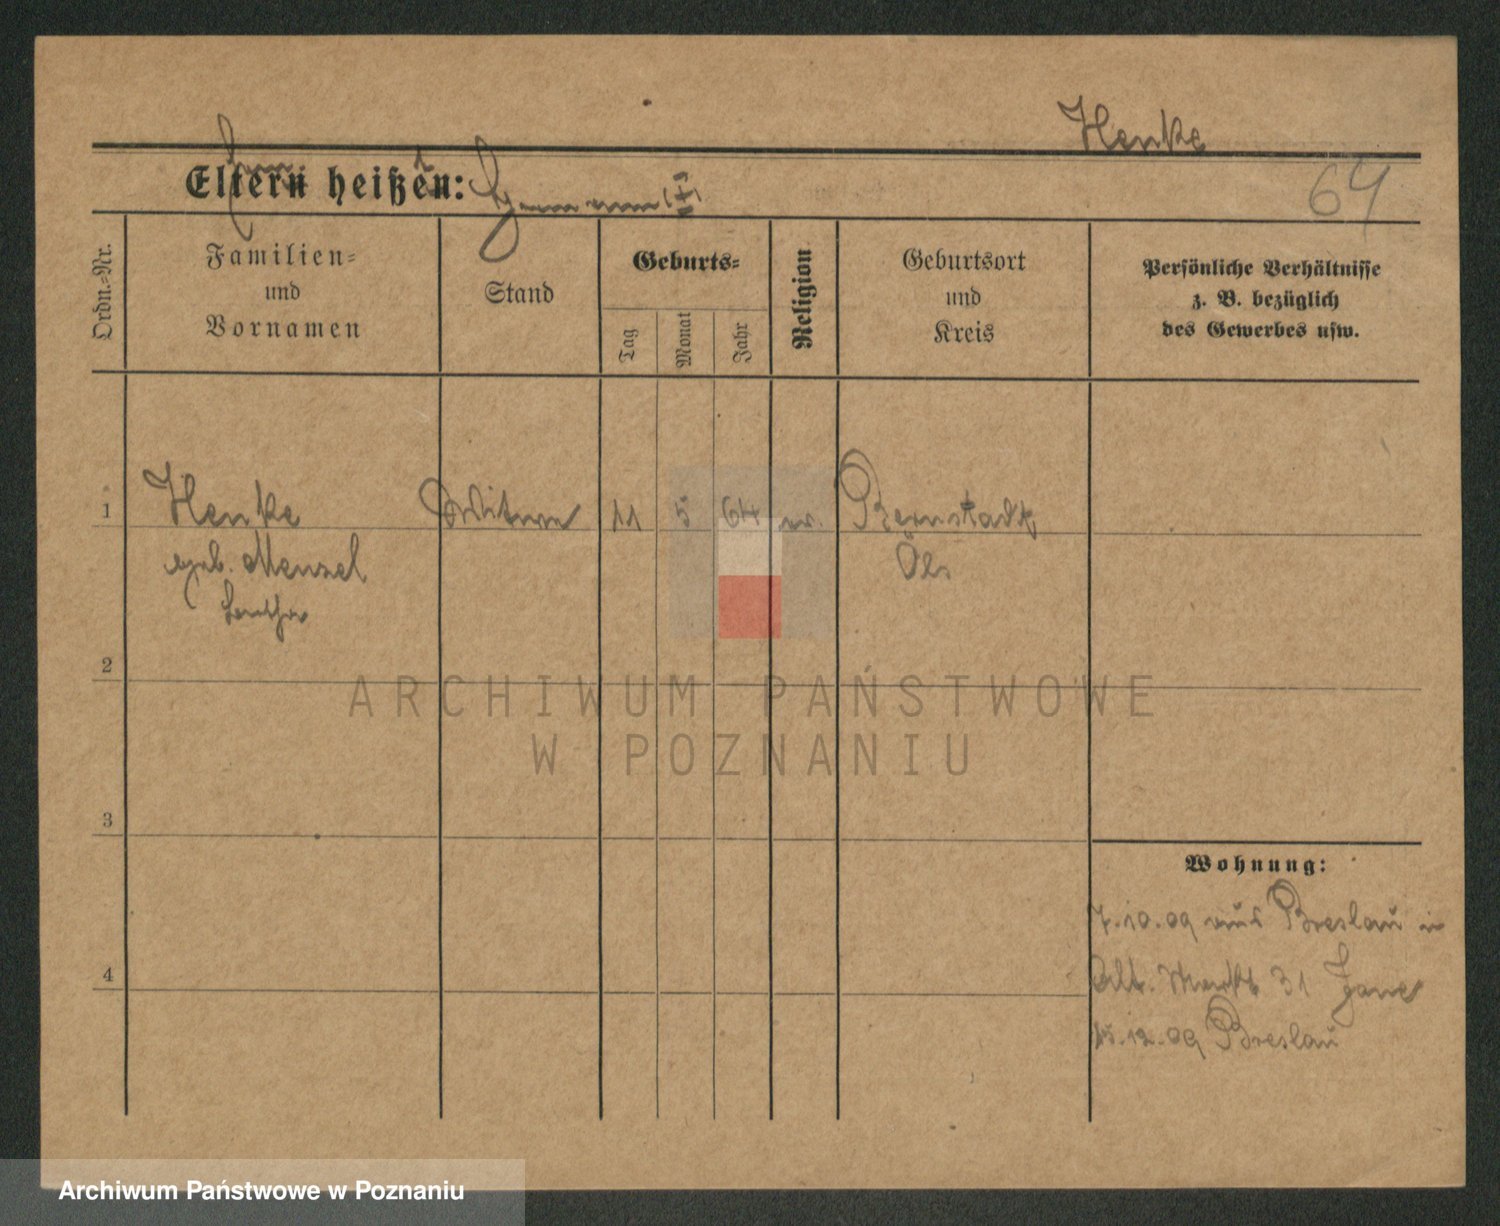 Henke
64
Eltern heißen:
Ordn.=Nr.
Familien=
und
Vornamen
Stand
Geburts=
Tag
Monat
Jahr
Religion
Geburtsort
und
Kreis
Persönliche Verhältnisse
z. B. bezüglich
des Gewerbes usw.
1 Henke Witwe 11 5 64 ev. Bernstadt
geb. Menzel Öls
2
ARCHIWUM PAŃSTWOWE
W POZNANIU
3
Wohnung:
7.10.09 aus Breslau in
4 Alt. Markt 31
15.12.09 Breslau
Archiwum Państwowe w Poznaniu